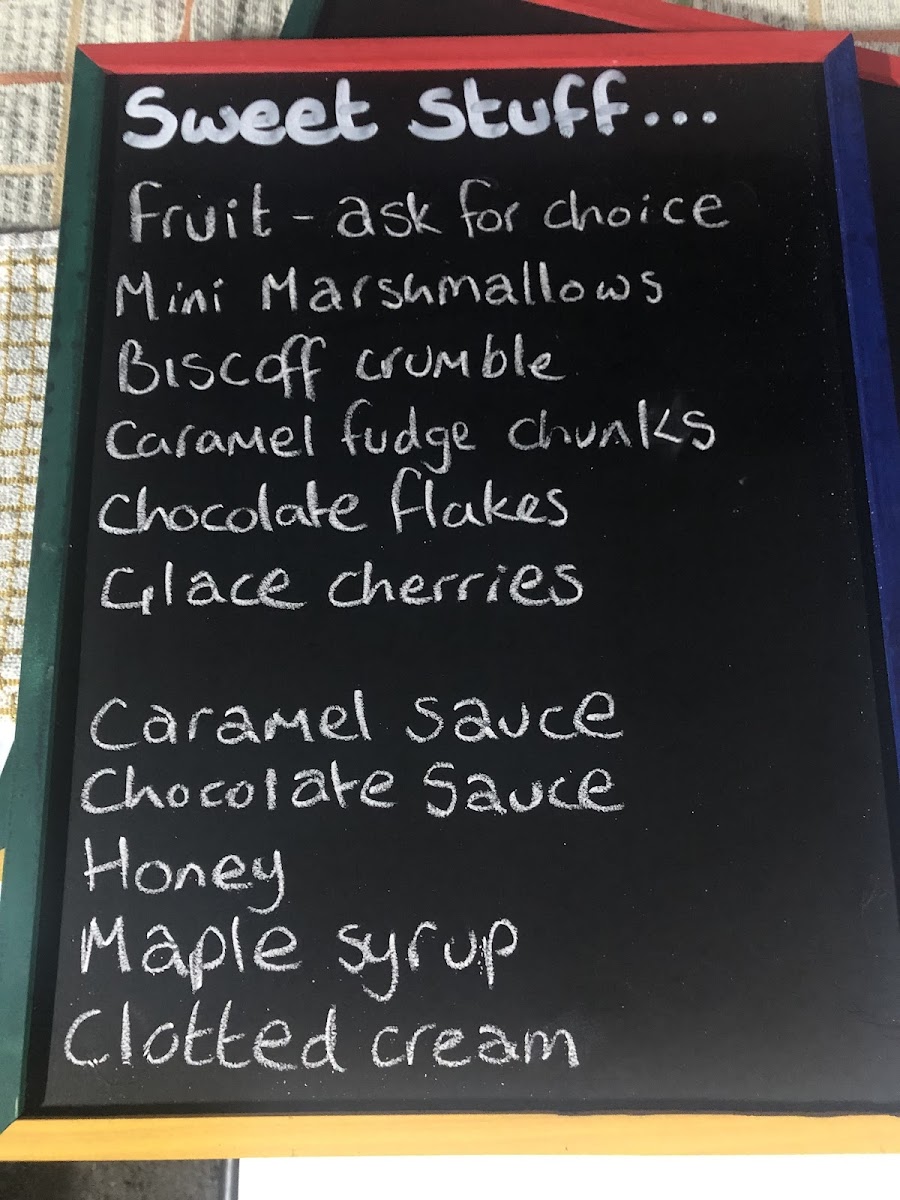 Sweet Stuff...
Fruit - ask for choice
Mini Marshmallows
Biscoff crumble
Caramel fudge chunks
Chocolate flakes
Glace cherries
Caramel sauce
Chocolate Sauce
Honey
Maple syrup
Clotted cream